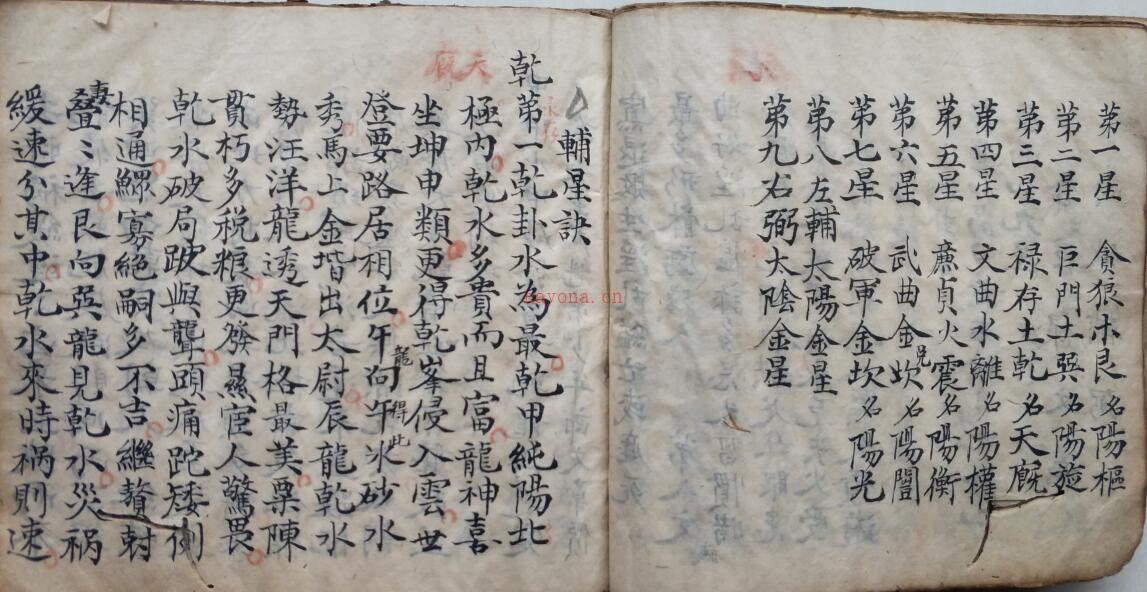 第一星 貪狼木艮 名陽樞
第二星 巨門土巽 名陽旋
第三星 禄存土乾 名天
第四星 文曲水離 名陽權
第五星 廉貞火震 名陽衡
第六星 武曲金兌 名陽闓
第七星 破軍金坎 名陽光
第八左輔太陽金星
第九右弼太陰金星
輔星訣
天
乾第一乾卦水為最乾甲純陽北
極内乾水多貴而且富龍神喜
坐坤申類更得乾峯侵入雲世
燈要路居相位午龍向午得此水砂水
秀馬上金堦出太尉辰龍乾水
勢汪洋龍透天門格最美粟陳
貫朽多税粮更發顯宦人驚畏
乾水破局跛與聾頭痛跎矮側
相通鰥寡絶嗣多不吉繼贅
妻疊〻逢艮向巽龍見乾水災禍
緩速分其中乾水來時禍則速
nayona.cn